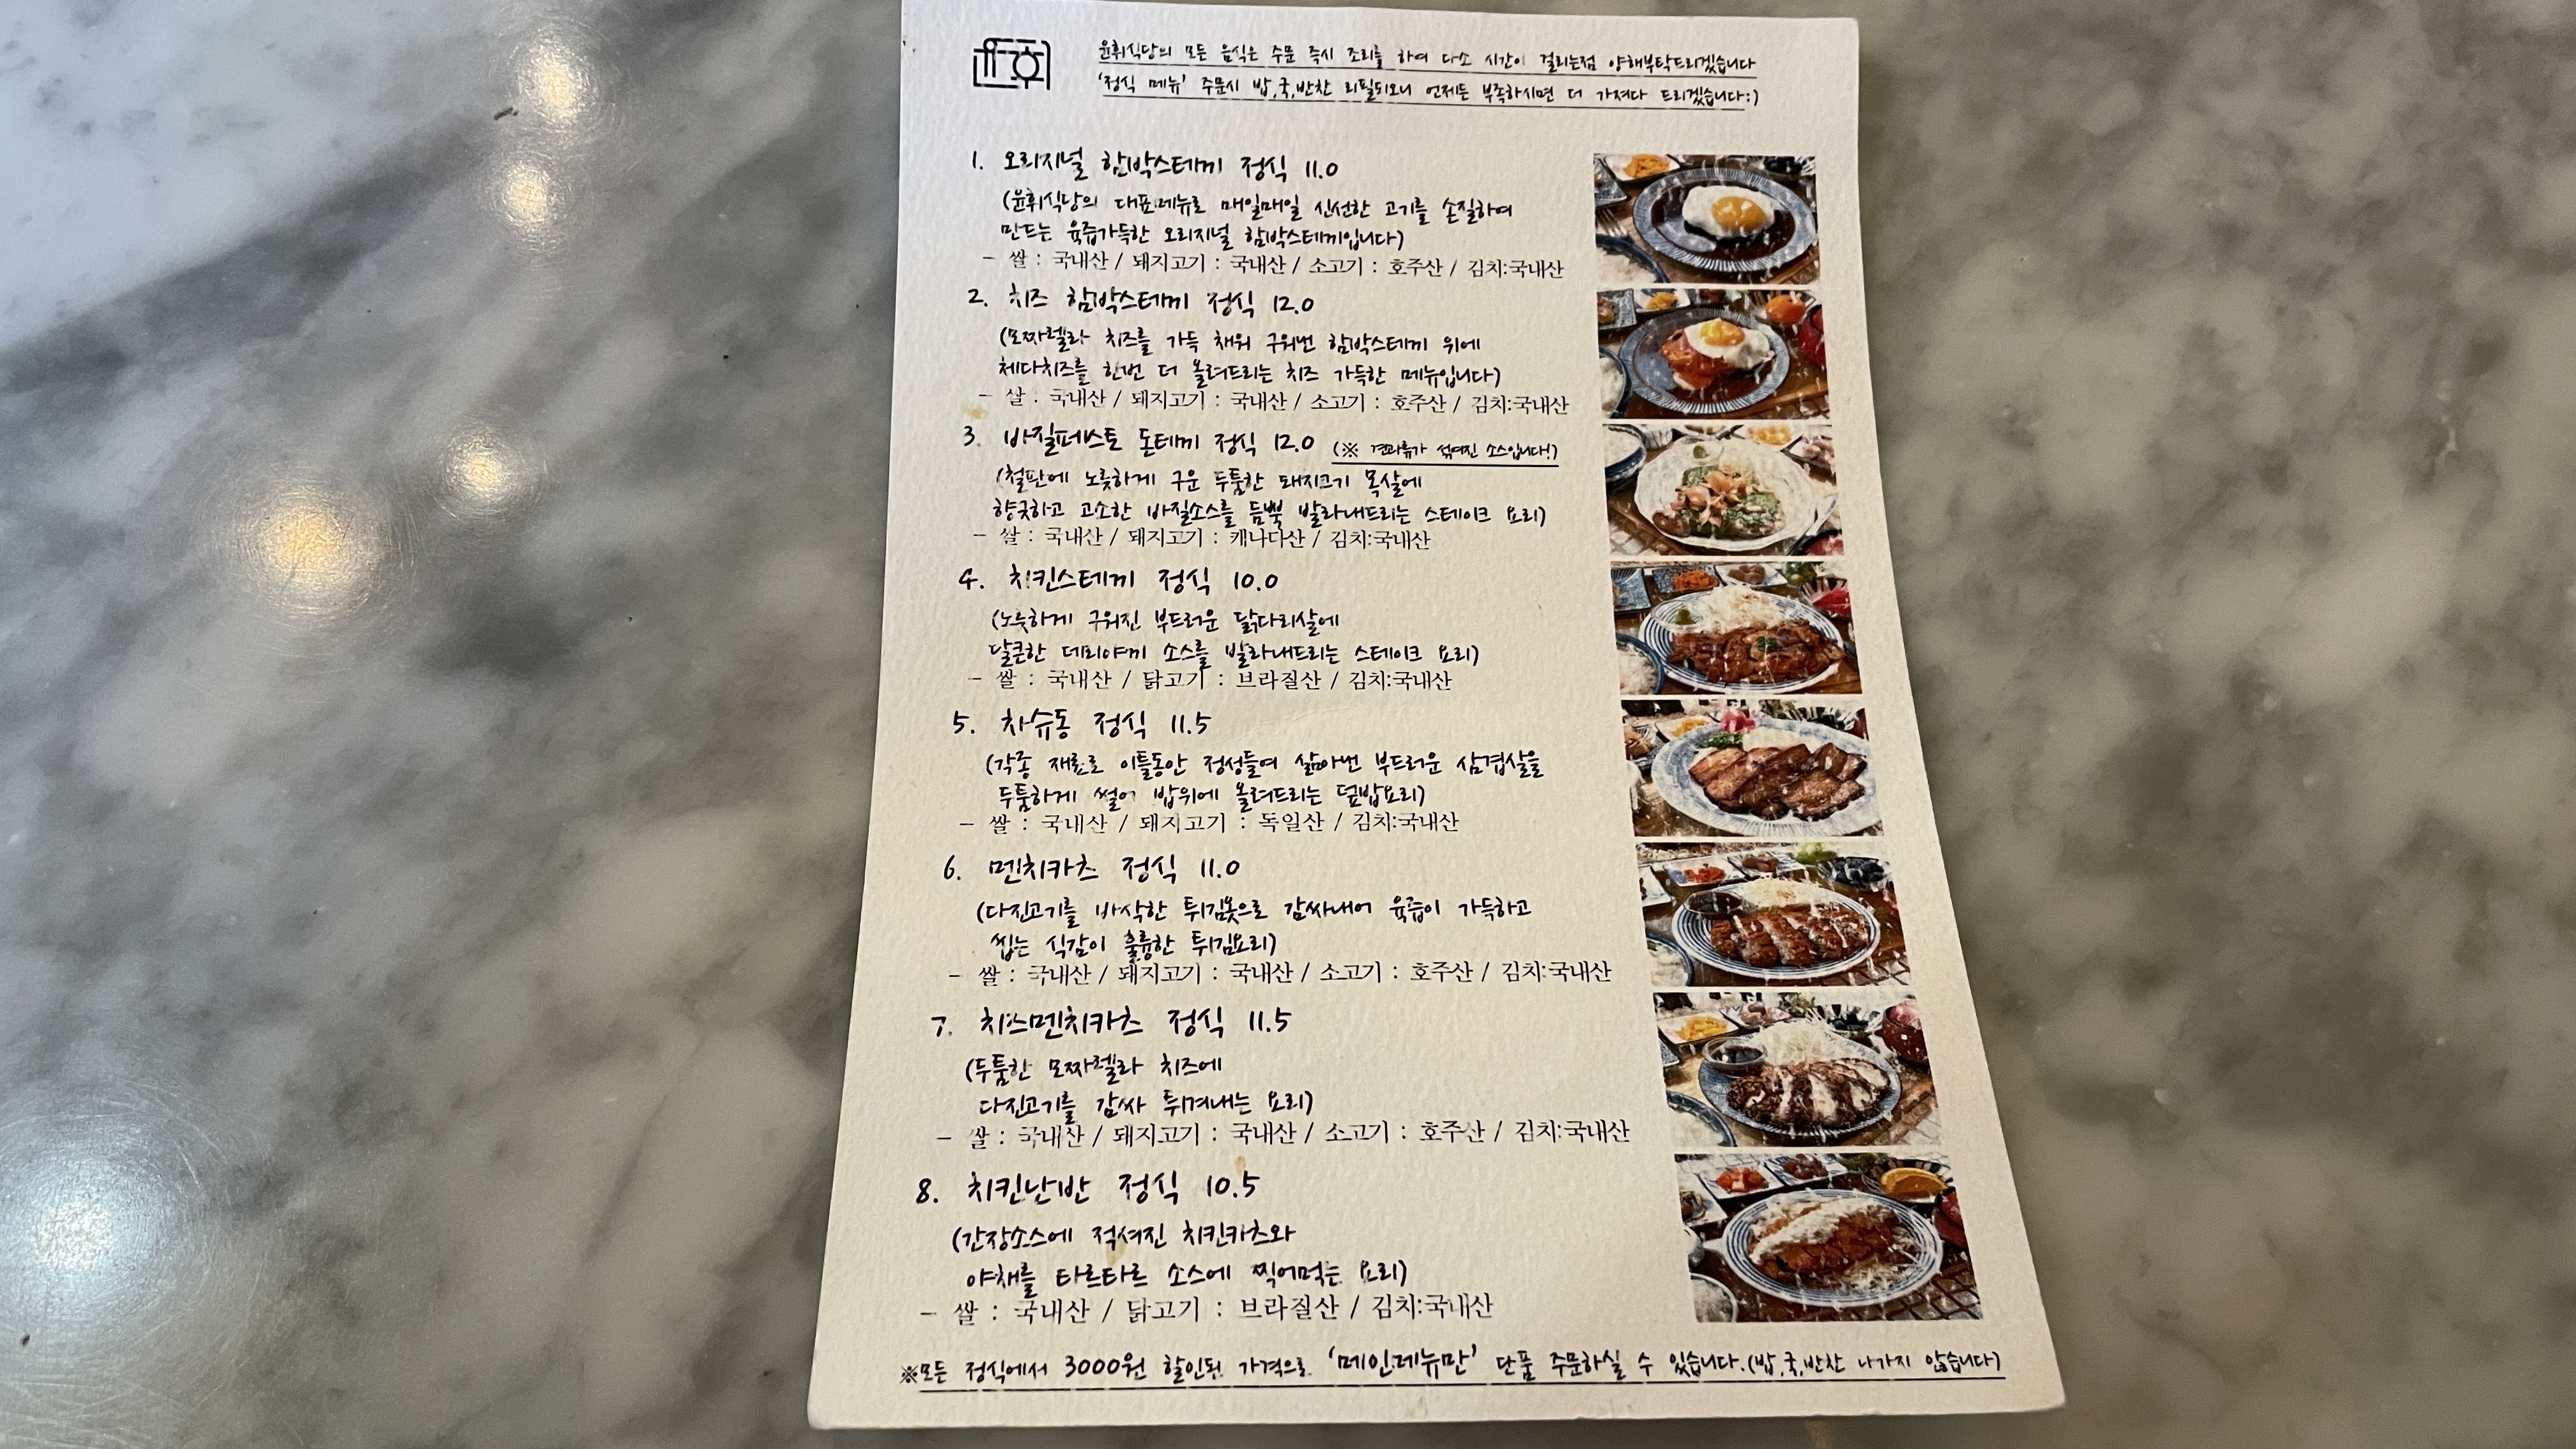 윤휘
윤휘식당의 모든 음식은 주문 즉시 조리를 하여 다소 시간이 걸리는점 양해부탁드리겠습니다
'정식 메뉴' 주문시 밥,국,반찬 리필되오니 언제든 부족하시면 더 가져다 드리겠습니다:)
1. 오리지널 함박스테끼 정식 11.0
(윤휘식당의 대표메뉴로 매일매일 신선한 고기를 손질하여
만드는 육즙가득한 오리지널 함박스테끼입니다)
- 쌀 : 국내산 / 돼지고기 : 국내산 / 소고기 : 호주산 / 김치:국내산
2. 치즈 함박스테끼 정식 12.0
(모짜렐라 치즈를 가득 채워 구워낸 함박스테끼 위에
체다치즈를 한번 더 올려드리는 치즈 가득한 메뉴입니다)
- 쌀 : 국내산 / 돼지고기 : 국내산 / 소고기 : 호주산 / 김치:국내산
3. 바질페스토 돈테끼 정식 12.0 (※ 견과류가 섞여진 소스입니다!)
(철판에 노릇하게 구운 두툼한 돼지고기 목살에
향긋하고 고소한 바질소스를 듬뿍 발라내드리는 스테이크 요리)
- 쌀 : 국내산 / 돼지고기 : 캐나다산 / 김치:국내산
4. 치킨스테끼 정식 10.0
(노릇하게 구워진 부드러운 닭다리살에
달큰한 데리야끼 소스를 발라내드리는 스테이크 요리)
- 쌀 : 국내산 / 닭고기 : 브라질산 / 김치:국내산
5. 차슈동 정식 11.5
(각종 재료로 이틀동안 정성들여 삶아낸 부드러운 삼겹살을
두툼하게 썰어 밥위에 올려드리는 덮밥요리)
- 쌀 : 국내산 / 돼지고기 : 독일산 / 김치:국내산
6. 멘치카츠 정식 11.0
(다진고기를 바삭한 튀김옷으로 감싸내어 육즙이 가득하고
씹는 식감이 훌륭한 튀김요리)
- 쌀 : 국내산 / 돼지고기 : 국내산 / 소고기 : 호주산 / 김치:국내산
7. 치즈멘치카츠 정식 11.5
(두툼한 모짜렐라 치즈에
다진고기를 감싸 튀겨내는 요리)
- 쌀 : 국내산 / 돼지고기 : 국내산 / 소고기 : 호주산 / 김치:국내산
8. 치킨난반 정식 10.5
(간장소스에 적셔진 치킨카츠와
야채를 타르타르 소스에 찍어먹는 요리)
- 쌀 : 국내산 / 닭고기 : 브라질산 / 김치:국내산
※모든 정식에서 3000원 할인된 가격으로 '메인메뉴만' 단품 주문하실 수 있습니다.(밥,국,반찬 나가지 않습니다)